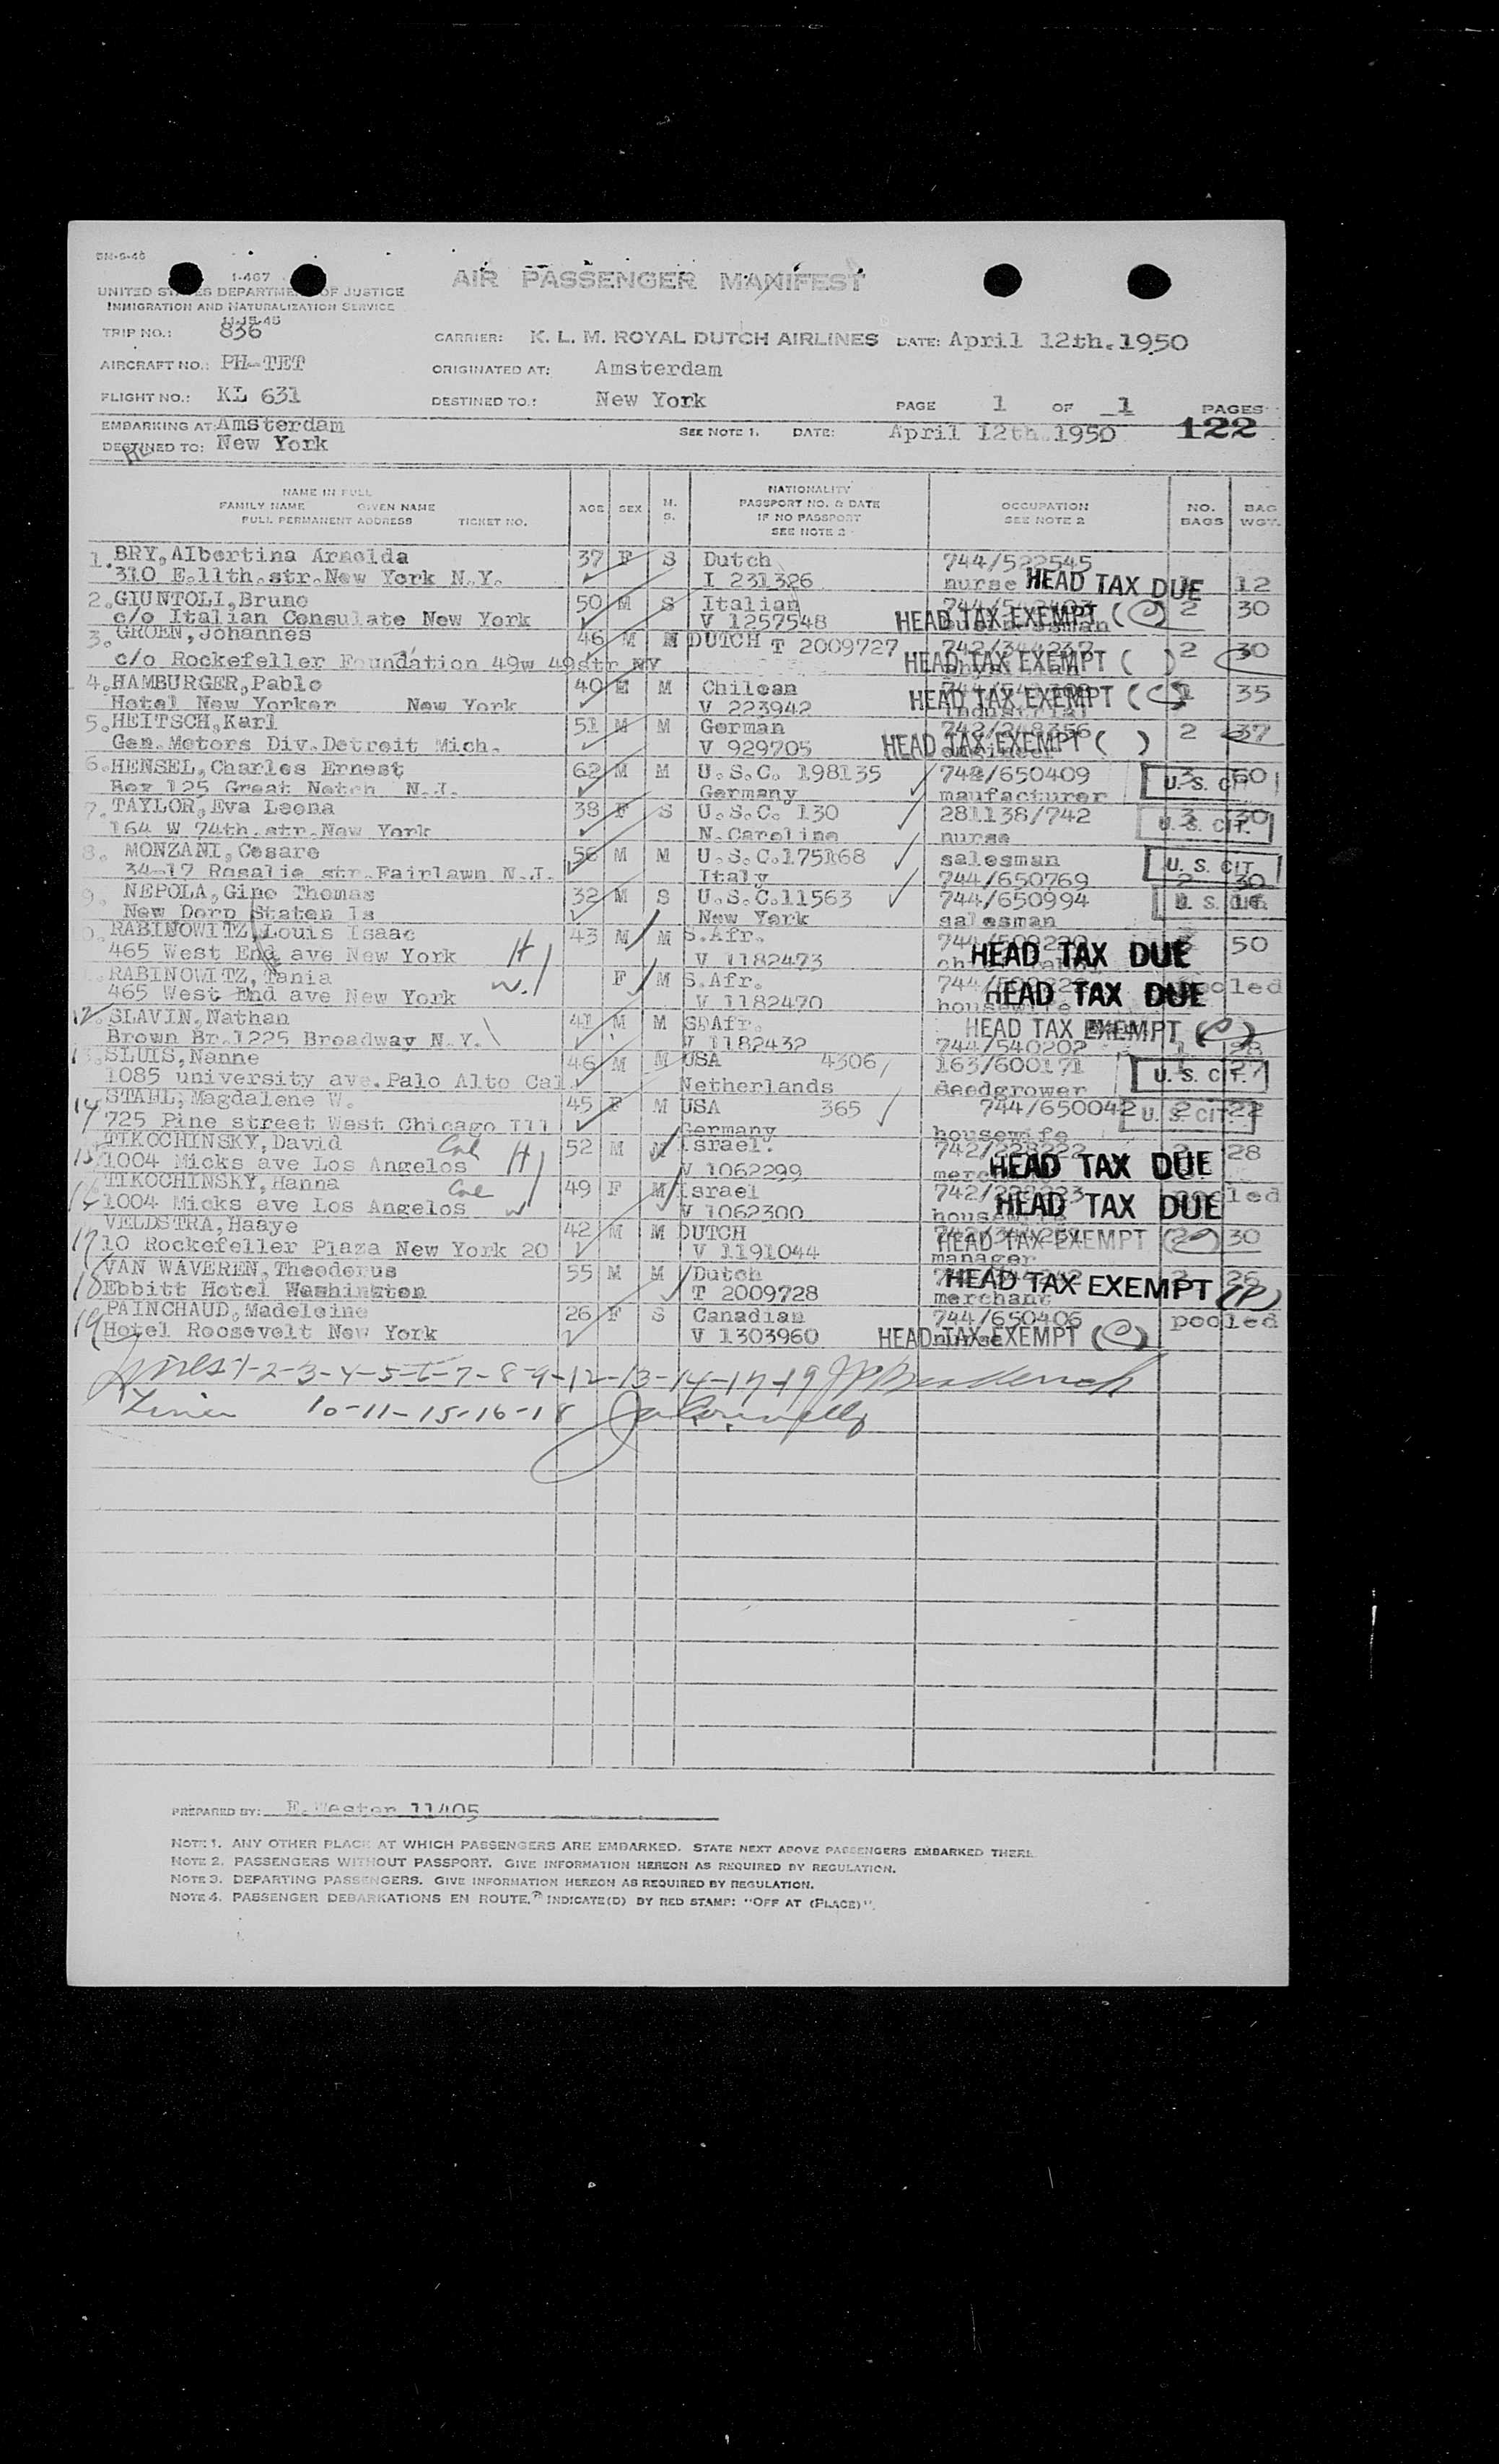 BN-6-46
I-467
UNITED STATES DEPARTMENT OF JUSTICE
IMMIGRATION AND NATURALIZATION SERVICE
11-15-45
AIR PASSENGER MANIFEST
TRIP NO.: 836
CARRIER: K. L. M. ROYAL DUTCH AIRLINES DATE: April 12th.1950
AIRCRAFT NO.: PH-TET
ORIGINATED AT: Amsterdam
FLIGHT NO.: KL 631
DESTINED TO.: New York
PAGE 1 OF 1 PAGES
EMBARKING AT: Amsterdam
SEE NOTE 1. DATE: April 12th.1950 122
DESTINED TO: New York
NAME IN FULL
FAMILY NAME GIVEN NAME
FULL PERMANENT ADDRESS TICKET NO.
AGE SEX M. S.
NATIONALITY
PASSPORT NO. & DATE
IF NO PASSPORT
SEE NOTE 2
OCCUPATION
SEE NOTE 2
NO. BAGS
BAG WGT.
1. BRY, Albertina Arnolda 37 F S Dutch 744/522545
310 E.11th.str.New York N.Y. I 231326 nurse HEAD TAX DUE 12
2. GIUNTOLI, Bruno 50 M S Italian 2 30
c/o Italian Consulate New York V 1257548 HEAD TAX EXEMPT (C)
3. GROEN, Johannes 46 M M DUTCH T 2009727 742/344237 2 30
c/o Rockefeller Foundation 49w 49str NY HEAD TAX EXEMPT ( )
4. HAMBURGER, Pablo 40 M M Chilean 1 35
Hotel New Yorker New York V 223942 HEAD TAX EXEMPT (C)
5. HEITSCH, Karl 51 M M German 742/248356 2 37
Gen.Motors Div.Detroit Mich. V 929705 HEAD TAX EXEMPT ( )
6. HENSEL, Charles Ernest 62 M M U.S.C. 198135 742/650409 3 60
Box 125 Great Notch N.J. Germany maufacturer U. S. CIT
7. TAYLOR, Eva Leona 38 F S U.S.C. 130 281138/742 3 30
164 W 74th.str.New York N.Caroline nurse U. S. CIT.
8. MONZANI, Cesare 56 M M U.S.C.175168 salesman U. S. CIT
34-17 Rosalie str.Fairlawn N.J. Italy 744/650769 2 30
9. NEPOLA, Gino Thomas 32 M S U.S.C.11563 744/650994 U. S. CIT.
New Dorp Staten Is New York salesman
RABINOWITZ, Louis Isaac 43 M M S.Afr. 50
465 West End ave New York H V 1182473 HEAD TAX DUE
RABINOWITZ, Tania F M S.Afr. pooled
465 West End ave New York W. V 1182470 housewife HEAD TAX DUE
12. SLAVIN, Nathan 41 M M S.Afr. HEAD TAX EXEMPT (C)
Brown Br.1225 Broadway N.Y. V 1182432 744/540202 1 28
13. SLUIS, Nanne 46 M M USA 4306 163/600171 1 27
1085 university ave.Palo Alto Cal Netherlands Seedgrower U. S. CIT.
14 STAHL, Magdalene W. 45 F M USA 365 744/650042 2 22
725 Pine street West Chicago Ill Germany housewife U. S. CIT.
15 TIKOCHINSKY, David Cal 52 M M Israel. 742/228222 28
1004 Micks ave Los Angelos H V 1062299 HEAD TAX DUE
16 TIKOCHINSKY, Hanna Cal 49 F M israel 742/228223 pooled
1004 Micks ave Los Angelos W V 1062300 housewife HEAD TAX DUE
17 VELDSTRA, Haaye 42 M M DUTCH 2 30
10 Rockefeller Plaza New York 20 V 1191044 manager HEAD TAX EXEMPT (C)
18 VAN WAVEREN, Theodorus 55 M M Dutch 26
Ebbitt Hotel Washington T 2009728 merchant HEAD TAX EXEMPT (P)
19 PAINCHAUD, Madeleine 26 F S Canadian 744/650406 pooled
Hotel Roosevelt New York V 1303960 nurse HEAD TAX EXEMPT (C)
Lines 1-2-3-4-5-6-7-8-9-12-13-14-17-19
Lines 10-11-15-16-18
PREPARED BY: E.Wester 11405
NOTE 1. ANY OTHER PLACE AT WHICH PASSENGERS ARE EMBARKED. STATE NEXT ABOVE PASSENGERS EMBARKED THERE.
NOTE 2. PASSENGERS WITHOUT PASSPORT. GIVE INFORMATION HEREON AS REQUIRED BY REGULATION.
NOTE 3. DEPARTING PASSENGERS. GIVE INFORMATION HEREON AS REQUIRED BY REGULATION.
NOTE 4. PASSENGER DEBARKATIONS EN ROUTE, INDICATE(D) BY RED STAMP: "OFF AT (PLACE)".